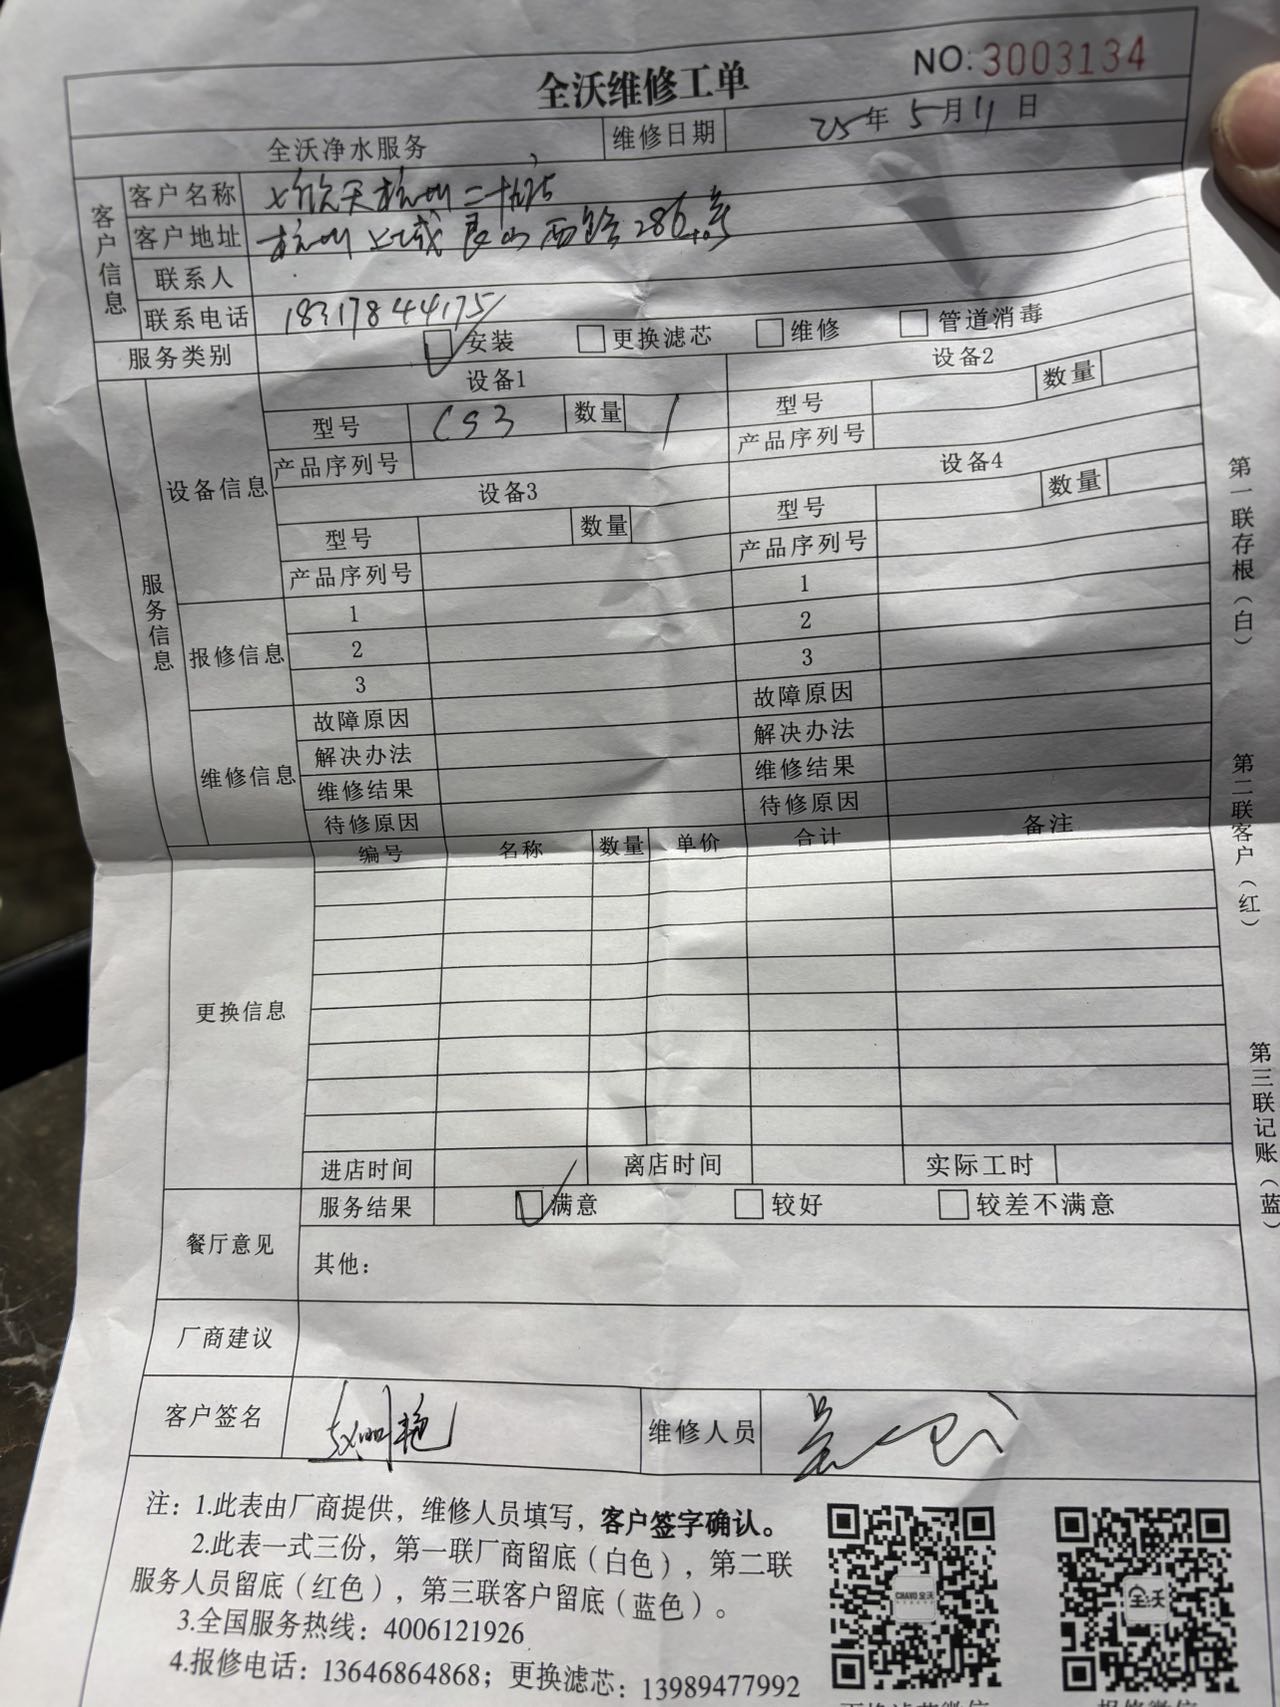 全沃维修工单
NO:3003134
全沃净水服务 维修日期 25年5月11日
客户信息
客户名称 七欣天杭州二十九店
客户地址 杭州上城艮山西路286号
联系人
联系电话 18317844175
服务类别 安装 更换滤芯 维修 管道消毒
服务信息
设备信息
设备1 设备2
型号 CS3 数量 1 型号 数量
产品序列号 产品序列号
设备3 设备4
型号 数量 型号 数量
产品序列号 产品序列号
报修信息
1 1
2 2
3 3
维修信息
故障原因 故障原因
解决办法 解决办法
维修结果 维修结果
待修原因 待修原因
更换信息
编号 名称 数量 单价 合计 备注
进店时间 离店时间 实际工时
餐厅意见
服务结果 满意 较好 较差不满意
其他：
厂商建议
客户签名 维修人员
注：1.此表由厂商提供，维修人员填写，客户签字确认。
2.此表一式三份，第一联厂商留底（白色），第二联
服务人员留底（红色），第三联客户留底（蓝色）。
3.全国服务热线：4006121926
4.报修电话：13646864868；更换滤芯：13989477992
CHAVO全沃
全沃
更换滤芯微信
报修微信
第一联存根（白）
第二联客户（红）
第三联记账（蓝）